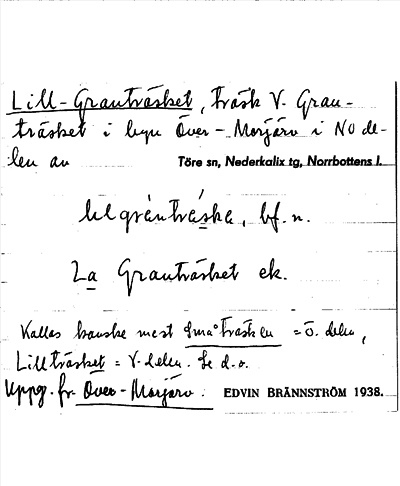 Lill-Granträsket, träsk V. Gran-
träsket i byn Över-Morjärv i NO de-
len av Töre sn, Nederkalix tg, Norrbottens l.
lilgrànträ́ska, bf. n.
La Granträsket ek.
Kallas kanske mest Småträsken = Ö. delen,
Lillträsket = V. delen. Se d. o.
Uppg. fr. Över-Morjärv. EDVIN BRÄNNSTRÖM 1938.